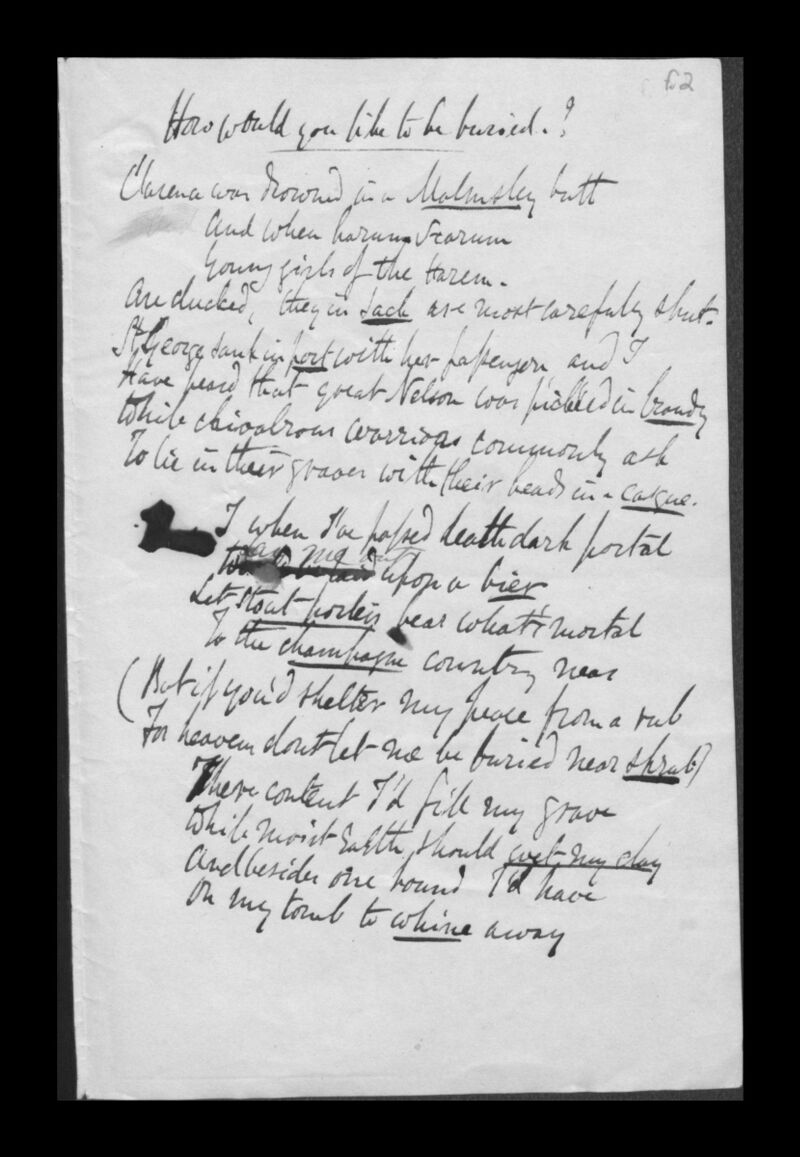 62
How would you like to be buried.?
Clarence was drowned in a Malmsley butt
And when harum scarum
Young girls of the Harem.
Are ducked, they in sack are most carefully shut.
St George sank in port with her passengers and I
Have heard that great Nelson was pickled in brandy
While chivalrous warriors commonly ask
To lie in their graves with their heads in a casque.
I when I've passed death dark portal
Lay me out upon a bier
Let stout porters bear what's mortal
To the champagne country near
(But if you'd shelter my peace from a rub
For heaven dont let me be buried near shrub)
There content I'd fill my grave
While moist Earth should wet my clay
And besides one hound I'd have
On my tomb to whine away